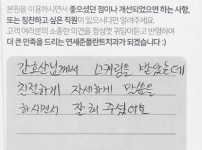 본원을 이용하시면서 좋으셨던 점이나 개선되었으면 하는 사항,
또는 칭찬하고 싶은 직원이 있으시다면 알려주세요.
고객 여러분의 소중한 의견을 정성껏 귀담아듣고 반영하여
더 큰 만족을 드리는 연세준플란트치과가 되겠습니다 :)
간호사님께서 스케일링을 받았는데
친절하게 자세하게 말씀을
하시면서 잘 해 주셨어요